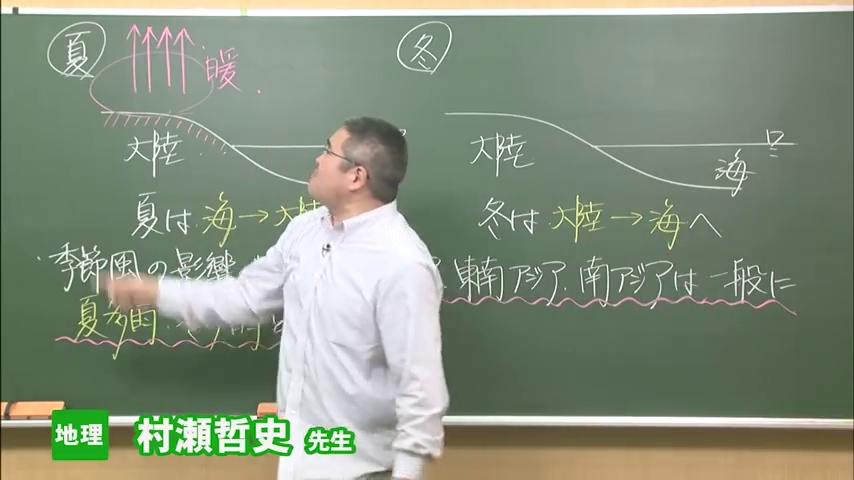 夏
暖
冬
大陸
大陸
海
夏は 海→大陸
冬は 大陸→海へ
季節風の影響
東南アジア、南アジアは一般に
夏多雨
地理 村瀬哲史 先生